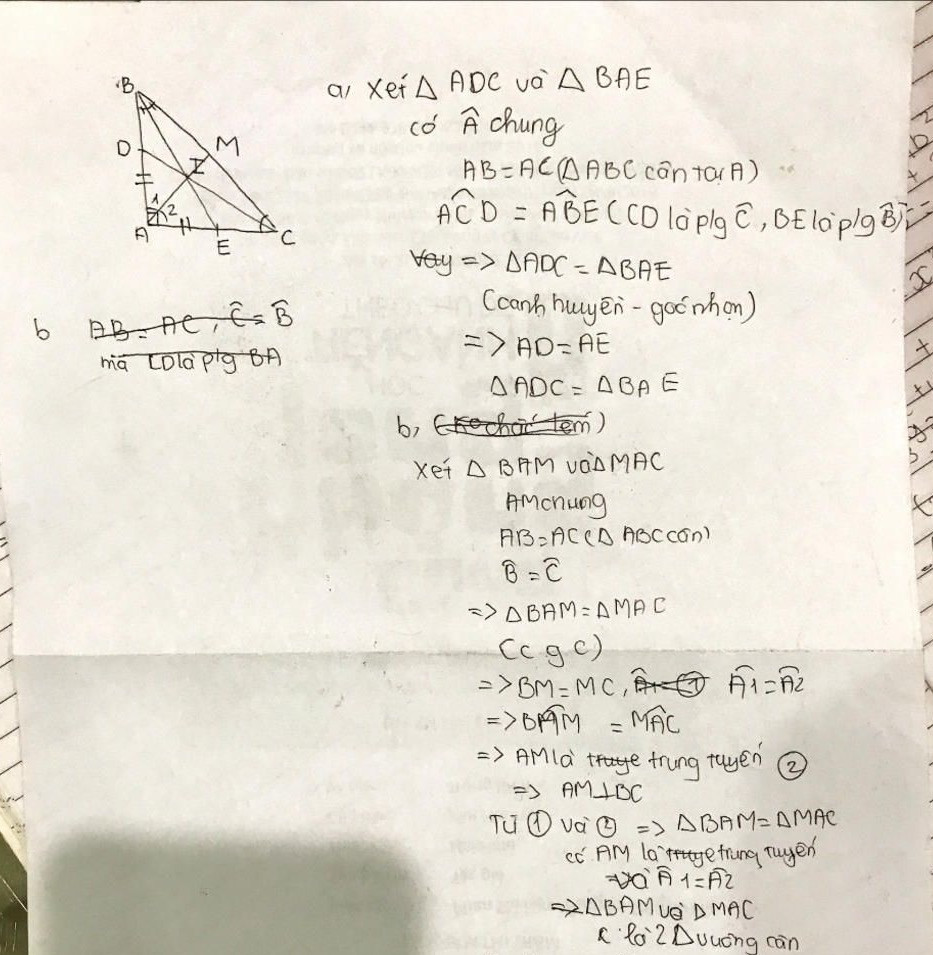 B
D
I
M
1
2
A
E
C
a, Xét Δ ADC và Δ BAE
có Â chung
AB = AC (Δ ABC cân tại A)
AĈD = AB̂E (CD là p/g Ĉ, BE là p/g B̂)
Vay => ΔADC = ΔBAE
(cạnh huyền - góc nhọn)
=> AD = AE
ΔADC = ΔBAE
b AB = AC, Ĉ = B̂
mà CD là p/g BA
b,
Xét Δ BAM và Δ MAC
AM chung
AB = AC (Δ ABC cân)
B̂ = Ĉ
=> ΔBAM = ΔMAC
(c g c)
=> BM = MC, Â1 = ① Â1 = Â2
=> BÂM = MÂC
=> AM là truye trung tuyến ②
=> AM ⊥ BC
Từ ① và ② => ΔBAM = ΔMAC
có AM là truye trung tuyến
và Â1 = Â2
=> ΔBAM và Δ MAC
là 2 Δ vuông cân